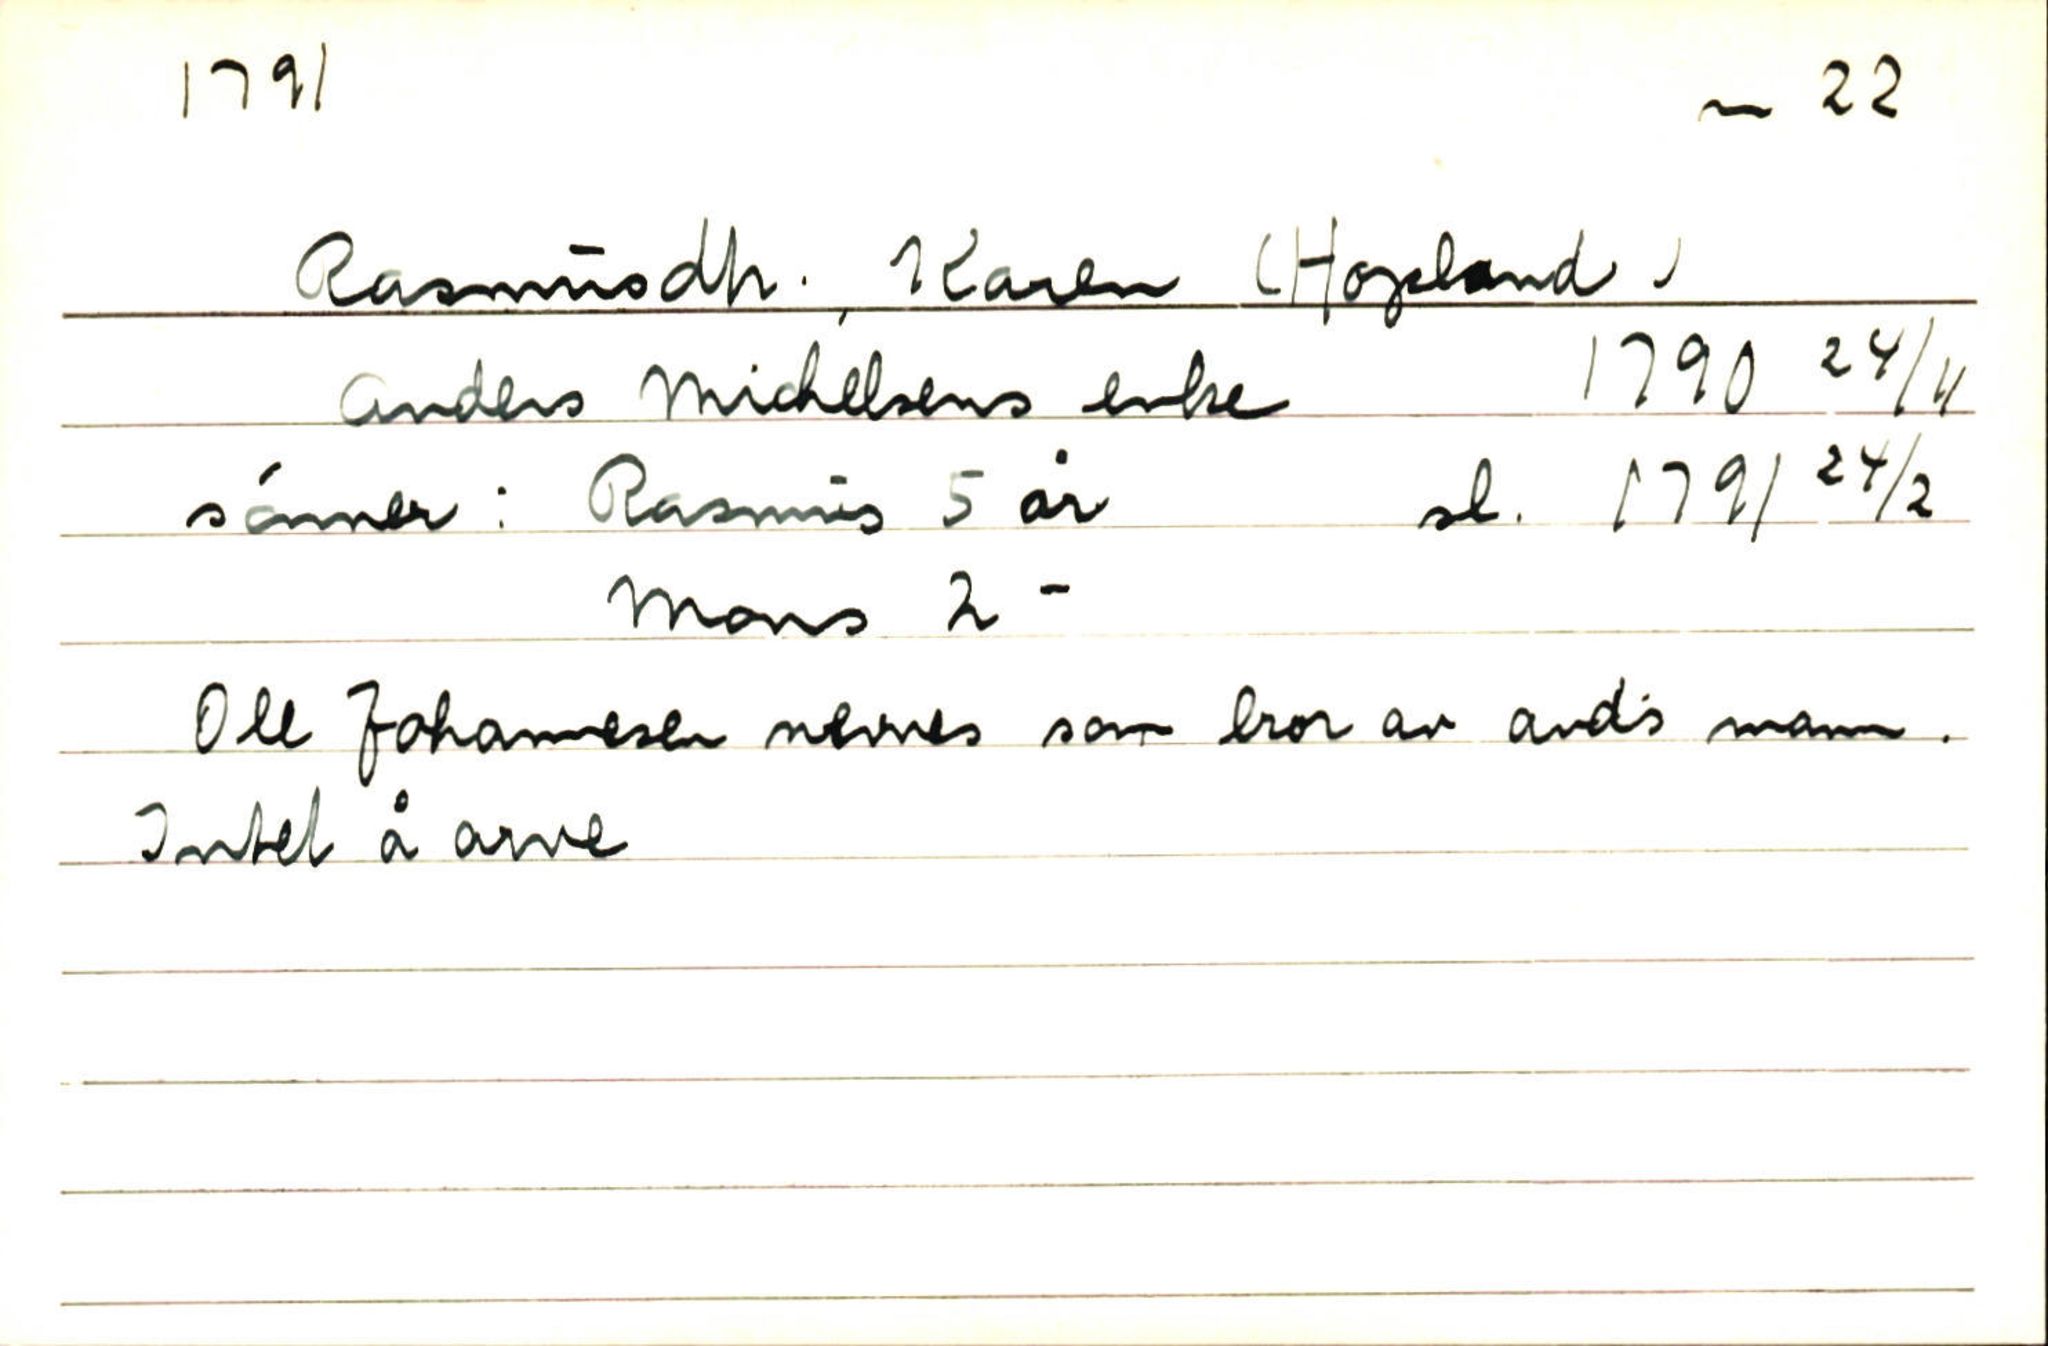 1791 ~ 22
Rasmusdtr. Karen (Hopland)
Anders Michelsens enke 1790 24/11
sønner: Rasmus 5 år sl. 1791 24/2
Mons 2 -
Ole Johannesen nevnes som bror av avd's mann.
Intet å arve